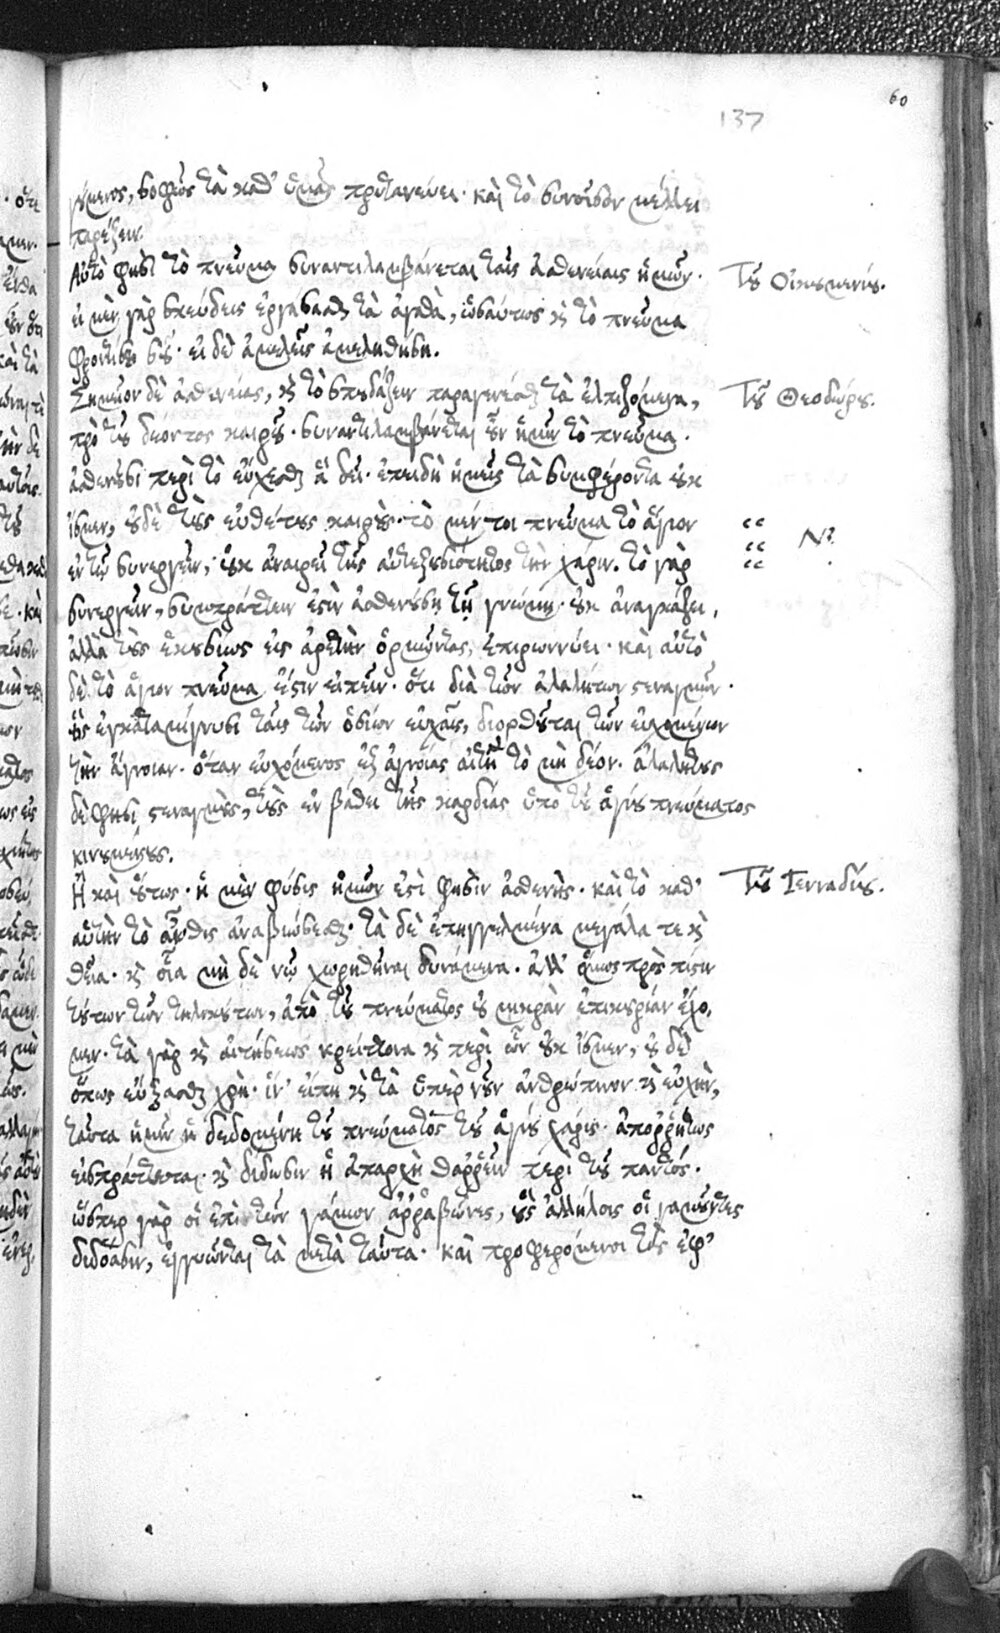 60
137
γόμενος, σοφῶς τὰ καθ' ἡμᾶς πρυτανεύει· καὶ τὸ συνοῖσον μέλλει
παρέξειν.
Αὐτὸ φησὶ τὸ πνεῦμα συναντιλαμβάνεται ταῖς ἀσθενείαις ἡμῶν·
Τοῦ Οἰκουμενίου.
εἰ μὲν γὰρ σπεύδεις ἐργάσασθαι τὰ ἀγαθὰ, ὡσαύτως καὶ τὸ πνεῦμα
φροντίσει σοῦ· εἰ δὲ ἀμελεῖς ἀμεληθήσῃ.
Σημεῖον δὲ ἀσθενείας, καὶ τὸ σπουδάζειν παραγενέσθαι τὰ ἐλπιζόμενα,
Τοῦ Θεοδώρου.
πρὸ τοῦ δέοντος καιροῦ· συναντιλαμβάνεται οὖν ἡμῖν τὸ πνεῦμα·
ἀσθενοῦσι περὶ τὸ εὔχεσθαι ἃ δεῖ· ἐπειδὴ ἡμεῖς τὰ συμφέροντα οὐκ
ἴσμεν, οὐδὲ τοὺς εὐθέτους καιρούς· τὸ μέντοι πνεῦμα τὸ ἅγιον
ἐν τῷ συνεργεῖν, οὐκ ἀναιρεῖ τῆς αὐτεξουσιότητος τὴν χάριν. τὸ γὰρ
συνεργεῖν, συμπράττειν ἐστὶν ἀσθενούσῃ τῇ γνώμῃ· οὐκ ἀναγκάζει,
ἀλλὰ τοὺς ἑκουσίως εἰς ἀρετὴν ὁρμῶντας, ἐπιρρωννύει· καὶ αὐτὸ
δὲ τὸ ἅγιον πνεῦμα ἔστιν εἰπεῖν· ὅτι διὰ τῶν ἀλαλήτων στεναγμῶν·
οὓς ἐγκαταμίγνυσι ταῖς τῶν ὁσίων εὐχαῖς, διορθοῦται τῶν εὐχομένων
τὴν ἄγνοιαν· ὅταν εὐχόμενος ἐξ ἀγνοίας αἰτῇ τὸ μὴ δέον. ἀλαλήτους
δὲ φησὶ στεναγμοὺς, τοὺς ἐν βάθει τῆς καρδίας ὑπὸ τοῦ ἁγίου πνεύματος
κινουμένους.
Ἢ καὶ οὕτως· ἡ μὲν φύσις ἡμῶν ἐστὶ φησὶν ἀσθενὴς· καὶ τὸ καθ'
Τοῦ Γενναδίου.
αὑτὴν τὸ αὖθις ἀναβιώσεσθαι· τὰ δὲ ἐπηγγελμένα μεγάλα τε καὶ
θεῖα· καὶ οἷα μὴ δὲ νῷ χωρηθῆναι δυνάμενα· ἀλλ' ὅμως πρὸς πίστιν
τούτων τῶν τηλικούτων, ἀπὸ τοῦ πνεύματος οὐ μικρὰν ἐπικουρίαν ἔχο,
μεν· τὰ γὰρ καὶ αἰτήσεως κρείττονα καὶ περὶ ὧν οὐκ ἴσμεν, οὐ δὲ
ὅπως εὔξασθαι χρὴ· ἵν' εἴπῃ καὶ τὰ ὑπὲρ νοῦν ἀνθρώπινον καὶ εὐχὴν,
ταῦτα ἡμῖν ἡ δεδομένη τοῦ πνεύματος τοῦ ἁγίου χάρις· ἀπορρήτως
εἰσπράττεται· καὶ δίδωσιν ἡ ἀπαρχὴ θαῤῥεῖν περὶ τοῦ παντός·
ὥσπερ γὰρ οἱ ἐπὶ τῶν γάμων ἀῤῥαβῶνες, οὓς ἀλλήλοις οἱ γαμοῦντες
διδόασιν, ἐγγυῶνται τὰ μετὰ ταῦτα· καὶ προφερόμενοι τοὺς ἐφ'